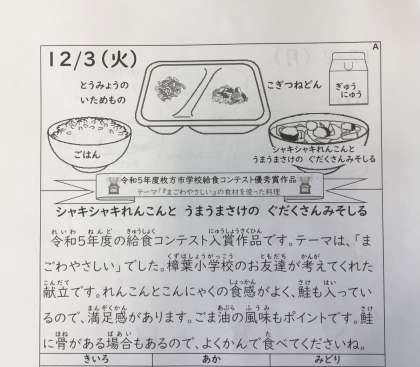 A
12/3(火)
とうみょうの
いためもの
こぎつねどん
ぎゅう
にゅう
ごはん
シャキシャキれんこんと
うまうまさけの ぐだくさんみそしる
令和5年度枚方市学校給食コンテスト優秀賞作品
テーマ「『まごわやさしい』の食材を使った料理
シャキシャキれんこんと うまうまさけの ぐだくさんみそしる
令和5年度の給食コンテスト入賞作品です。テーマは、「ま
ごわやさしい」でした。樟葉小学校のお友達が考えてくれた
献立です。れんこんとこんにゃくの食感がよく、鮭も入ってい
るので、満足感があります。ごま油の風味もポイントです。鮭
に骨がある場合もあるので、よくかんで食べてくださいね。
きいろ あか みどり